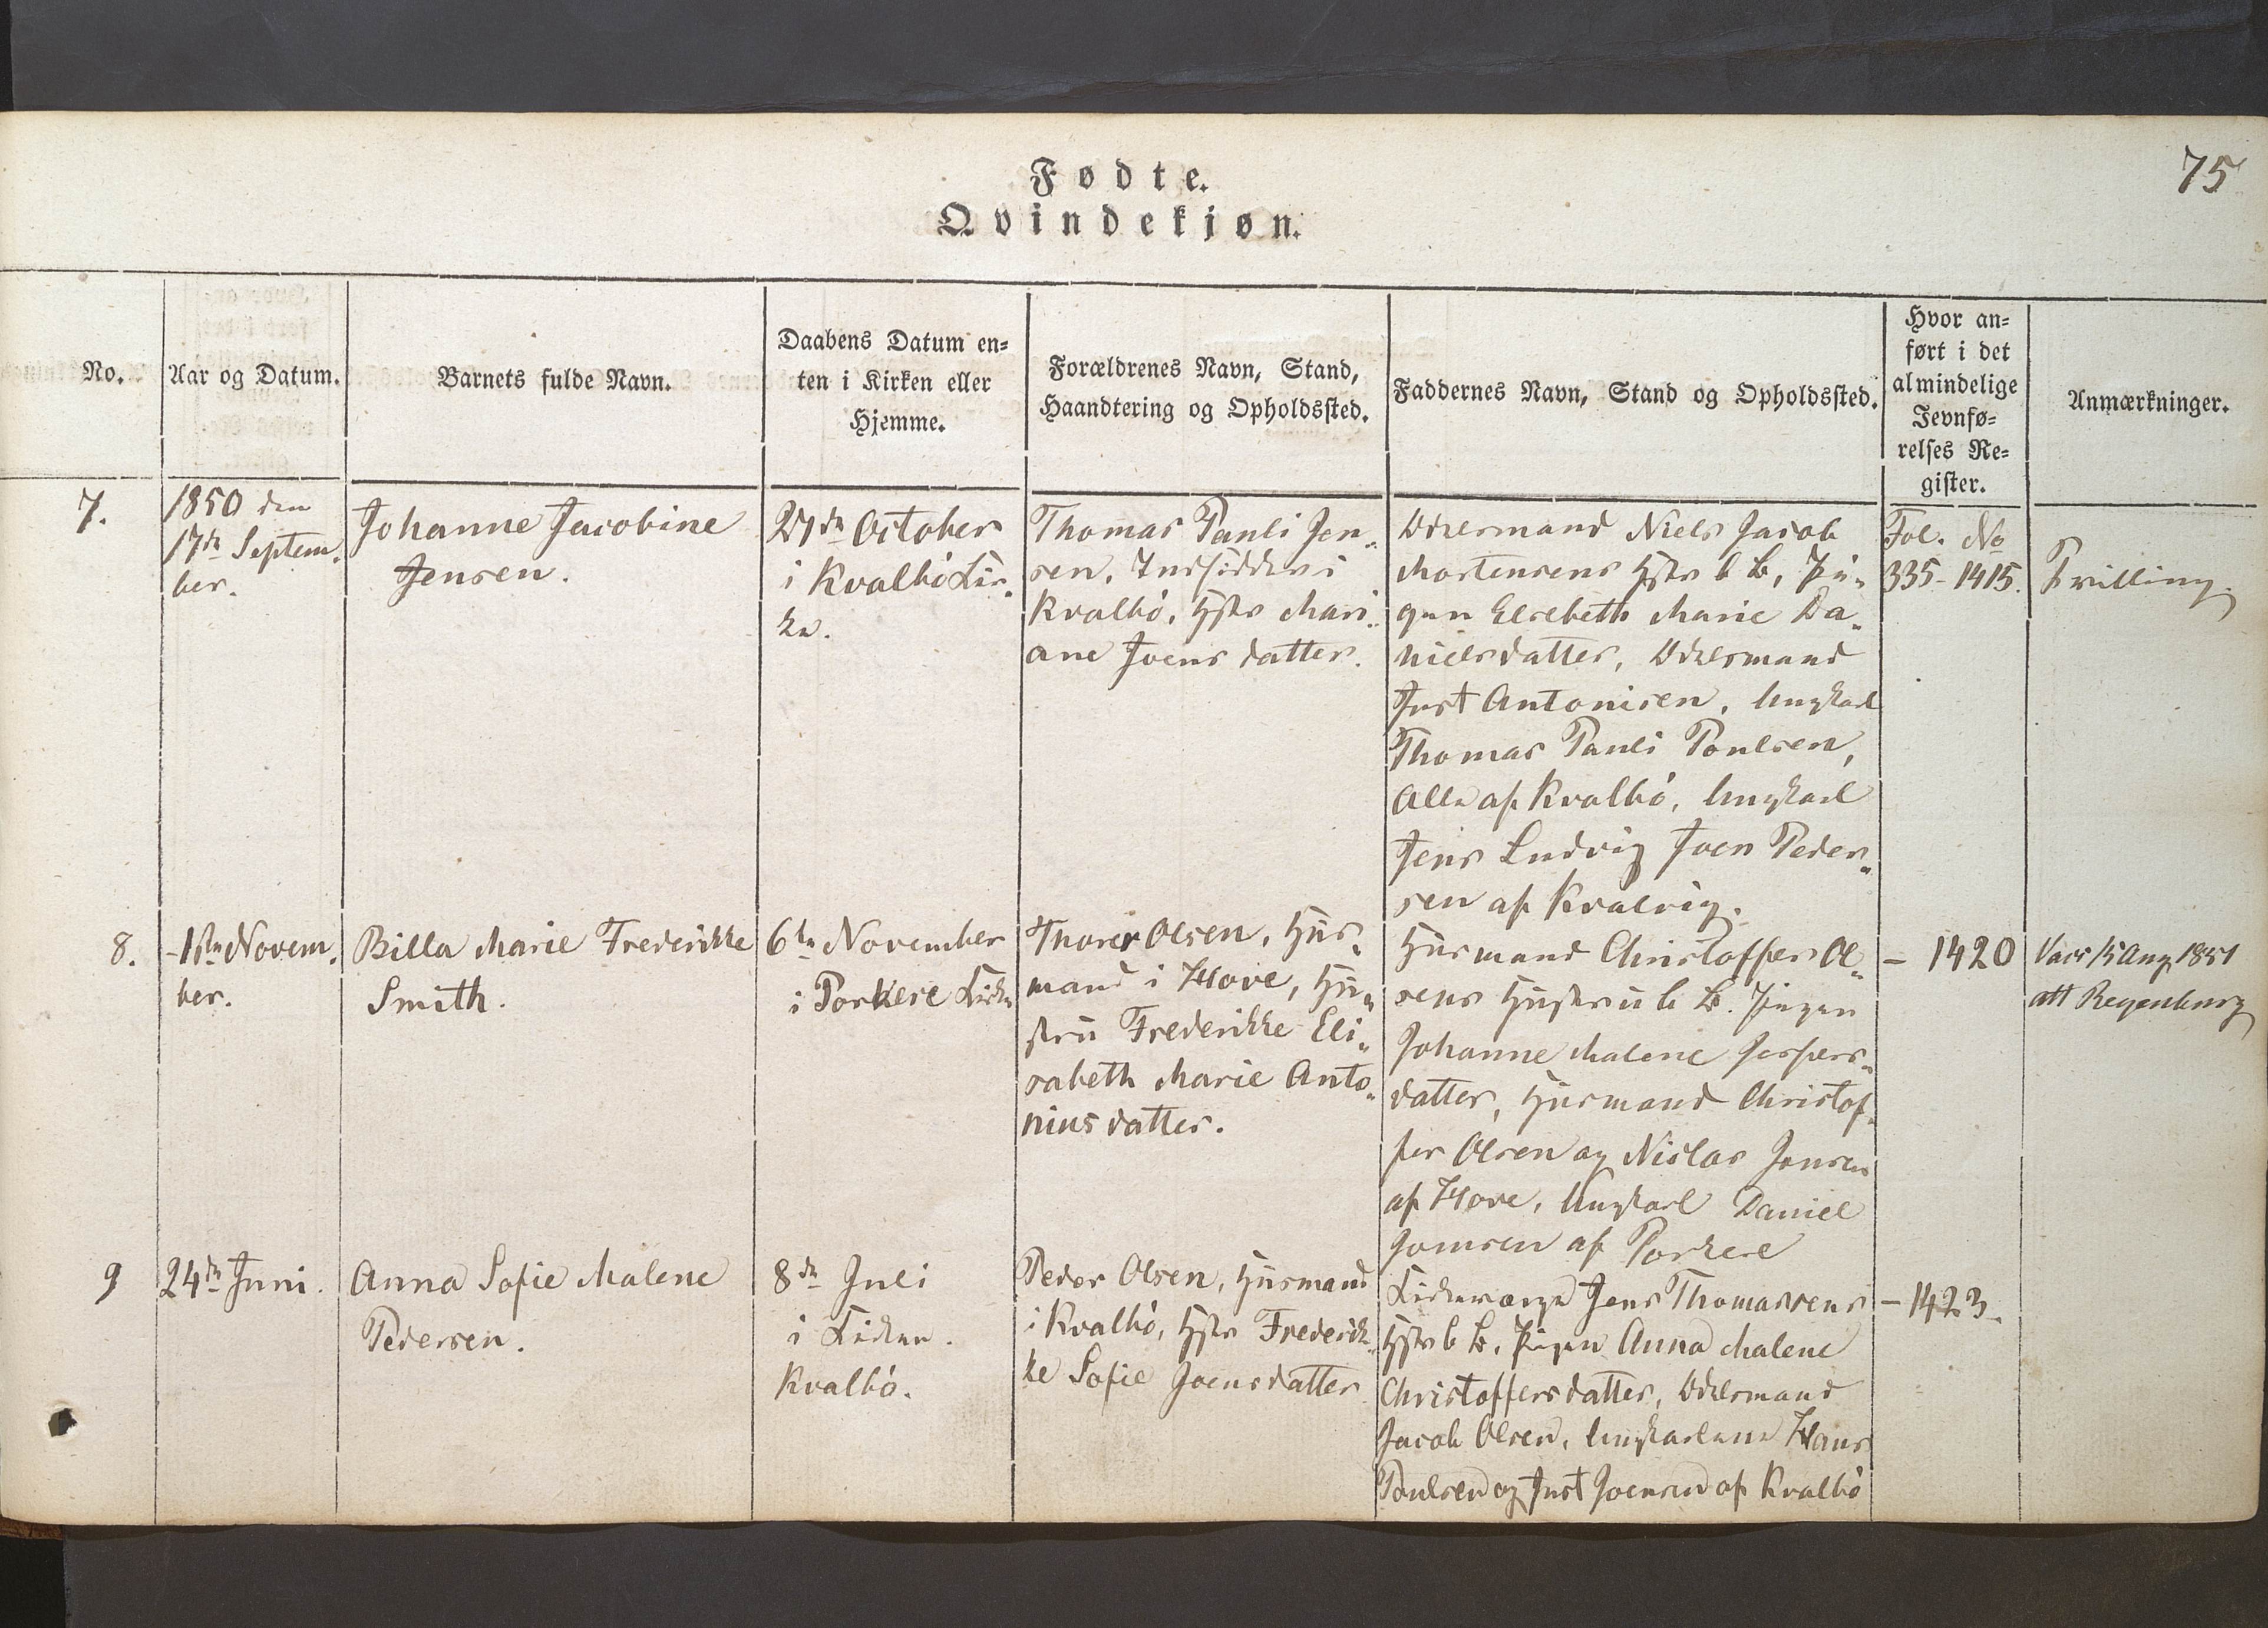 75
Fødte.
Qvindekjøn.
No.
Aar og Datum.
Barnets fulde Navn.
Daabens Datum en-
ten i Kirken eller
Hjemme.
Forældrenes Navn, Stand,
Haandtering og Opholdssted.
Faddernes Navn, Stand og Opholdssted.
Hvor an-
ført i det
almindelige
Jevnfø-
relses Re-
gister.
Anmærkninger.
7.
1850 den
17de Septem-
ber.
Johanne Jacobine
Jensen.
27de October
i Kvalbö Kir-
ke.
Thomas Pauli Jen-
sen, Indsidder i
Kvalbö, Hstr Mari-
ane Joensdatter.
Odelsmand Niels Jacob
Mortensens Hstr b B, Pi-
gen Elsebeth Marie Da-
nielsdatter, Odelsmand
Just Antonisen, Ungkarl
Thomas Pauli Poulsen,
Alle af Kvalbö, Ungkarl
Jens Ludvig Joen Peder-
sen af Kvalvig.
Fol. No
335 - 1415.
Tvilling.
8.
- 1ste Novem-
ber.
Billa Marie Frederikke
Smith.
6te November
i Porkere Kirke
Thorer Olsen, Hus-
mand i Hove, Hu-
stru Frederikke Eli-
sabeth Marie Anto-
niusdatter.
Husmand Christoffer Ol-
sens Hustru b B. Pigen
Johanne Malene Jespers-
datter, Husmand Christof-
fer Olsen og Niclas Jensen
af Hove, Ungkarl Daniel
Joensen af Porkere
- 1420
Vacc 15 Aug 1851
att Regenburg
9
24de Juni.
Anna Sofie Malene
Pedersen.
8de Juli
i Kirken.
Kvalbö.
Peder Olsen, Husmand
i Kvalbö, Hstr Frederik-
ke Sofie Joensdatter
Kirkeværge Jens Thomassens
Hstr b B. Pigen Anna Malene
Christoffersdatter, Odelsmand
Jacob Olsen, Ungkarlene Hans
Poulsen og Just Joensen af Kvalbö
- 1423.